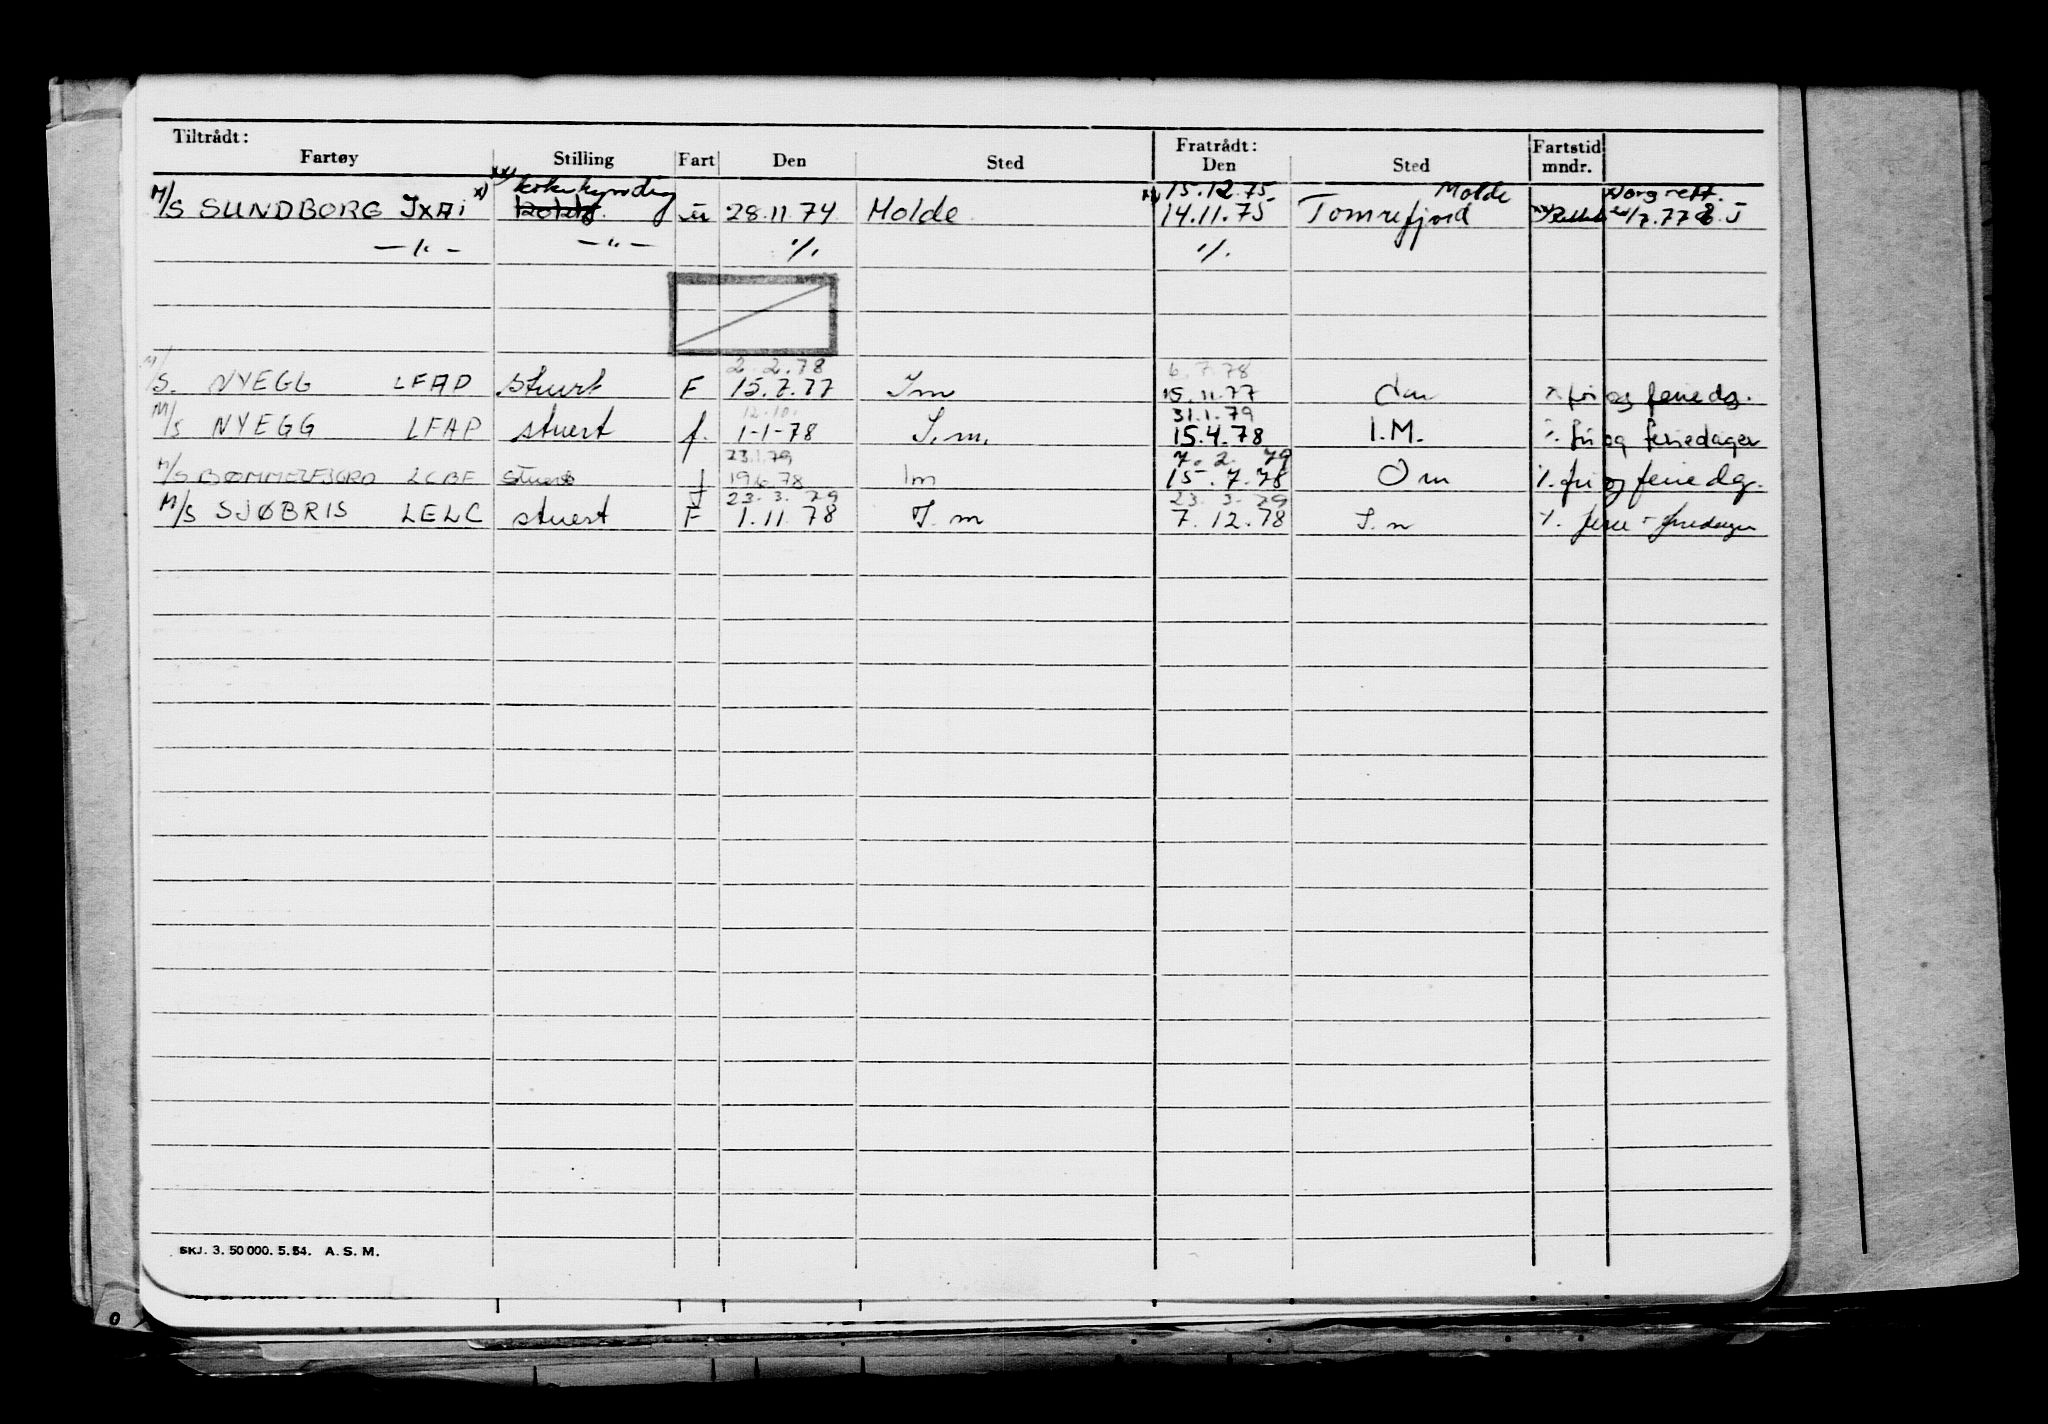 Tiltrådt: Fratrådt: Fartstid
Fartøy Stilling Fart Den Sted Den Sted mndr.
xx) kokekyndig 15.12.75 Molde
M/S SUNDBORG JXAI x) kokk 28.11 74 Molde 14.11.75 Tomrefjord /7.77
—"— —"— ./. ./.
2.2.78 6.7.78
M/S. NYEGG LFAP Stuert F 15.7.77 Im 15.11.77 fri og feriedg.
12.10. 31.1.79
M/S NYEGG LFAP stuert f. 1-1-78 I.m. 15.4.78 I.M. ./. fri og feriedager
23.1.79 7.2.79
M/S BØMMELFJORD LCBE Stuert f 19.6.78 Im 15.7.78 Om ./. fri og feriedg.
23.3.79 23.3.79
M/S SJØBRIS LELC stuert F 1.11.78 I.m 7.12.78 I.m ./. ferie - fridager
SKJ. 3. 50 000. 5.54. A. S. M.